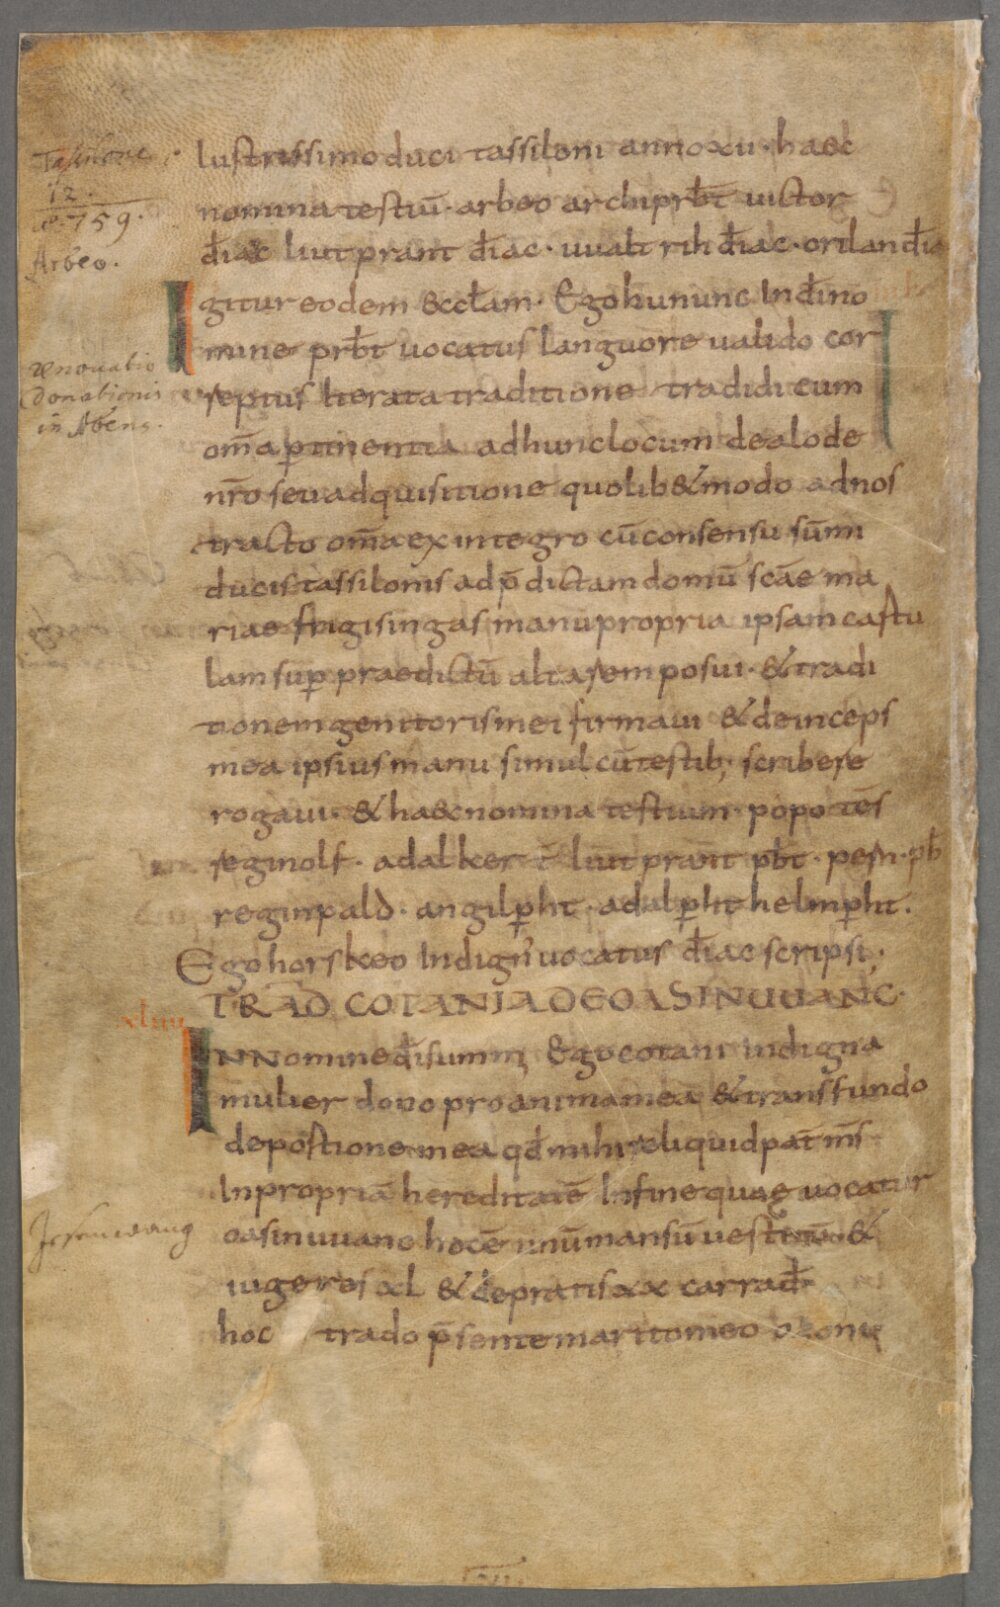 lustrissimo duci tassiloni anno xii · haec
nomina testiū · arbeo archiprb̄t uictor
d̄iac liutprant d̄iac · uualtrih d̄iac · ortlan d̄ia
Igitur eodem &ccl̄am · Ego hununc Indino
mine prb̄t uocatus languore ualido cor
reptus Iterata traditione tradidi cum
om̄a ptinentia ad hunc locum de alode
nr̄o seu adquisitione quolib& modo ad nos
tracto om̄a ex integro cū consensu sūmi
ducis tassilonis ad p̄dictam domū sc̄ae ma
riae frigisingas manu propria ipsam castu
lam sup praedictū altarem posui · & tradi
tionem genitoris mei firmaui & deinceps
mea ipsius manu simul cū testib; scribere
rogaui · & haec nomina testium · popo tes̄
reginolf · adalker t̄ liutprant pb̄t · peri · pb̄
reginpald · angilpht · adalpht helmpht ·
Ego horskeo Indign' uocatus d̄iac scripsi ·
TRAD COTANIA DE OASINUUANC ·
xliiii
INNomine d̄i summi Ego cotani indigna
mulier dono pro anima mea & transfundo
depostione mea qd̄ mihi reliquid pat̄ m̄s
In propriā hereditatē In fine quae uocatur
oasinuuanc hoc ē unū mansū uestitū · &
iugeres xl & de pratis xx carrad̄
hoc trado p̄sente marito meo
Tassilone
12.
aº. 759.
Arbeo.
renouatio
donationis
in Abens.
Jesenwang